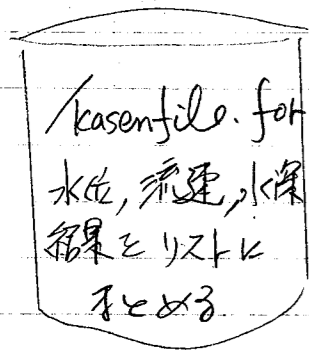 /kasenfile.for
水位,流速,水深
結果をリストに
まとめる